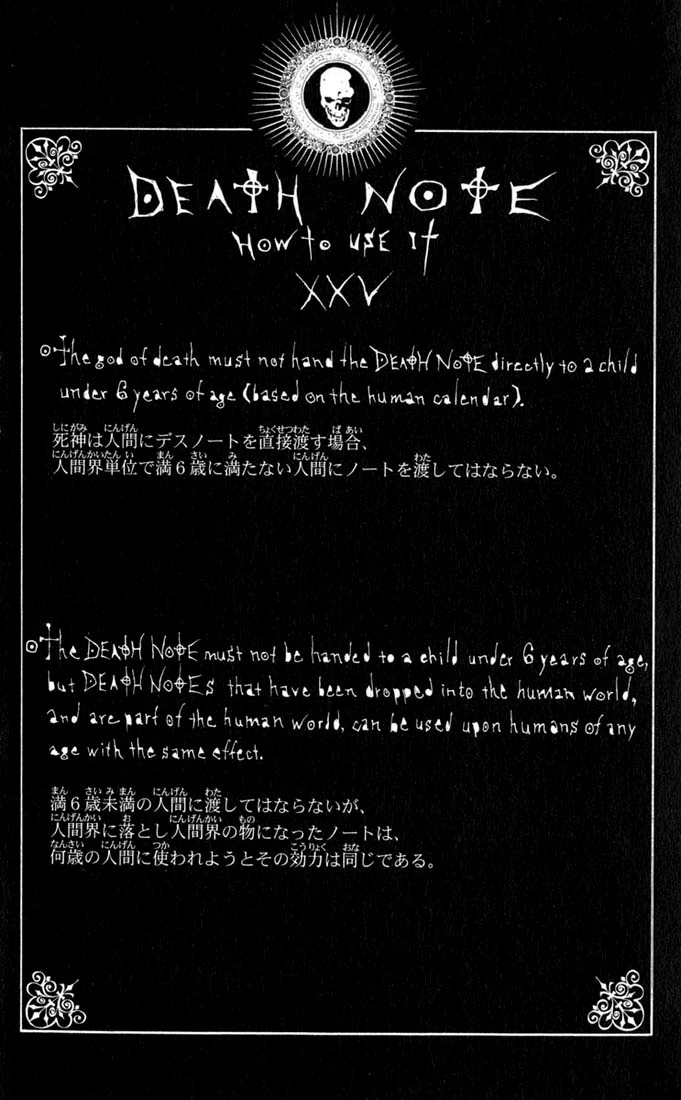 DEATH NOTE
HOW to USE It
XXV
The god of death must not hand the DEATH NOTE directly to a child
under 6 years of age (based on the human calendar).
死神は人間にデスノートを直接渡す場合、
人間界単位で満6歳に満たない人間にノートを渡してはならない。
The DEATH NOTE must not be handed to a child under 6 years of age,
but DEATH NOTEs that have been dropped into the human world,
and are part of the human world, can be used upon humans of any
age with the same effect.
満6歳未満の人間に渡してはならないが、
人間界に落とし人間界の物になったノートは、
何歳の人間に使われようとその効力は同じである。